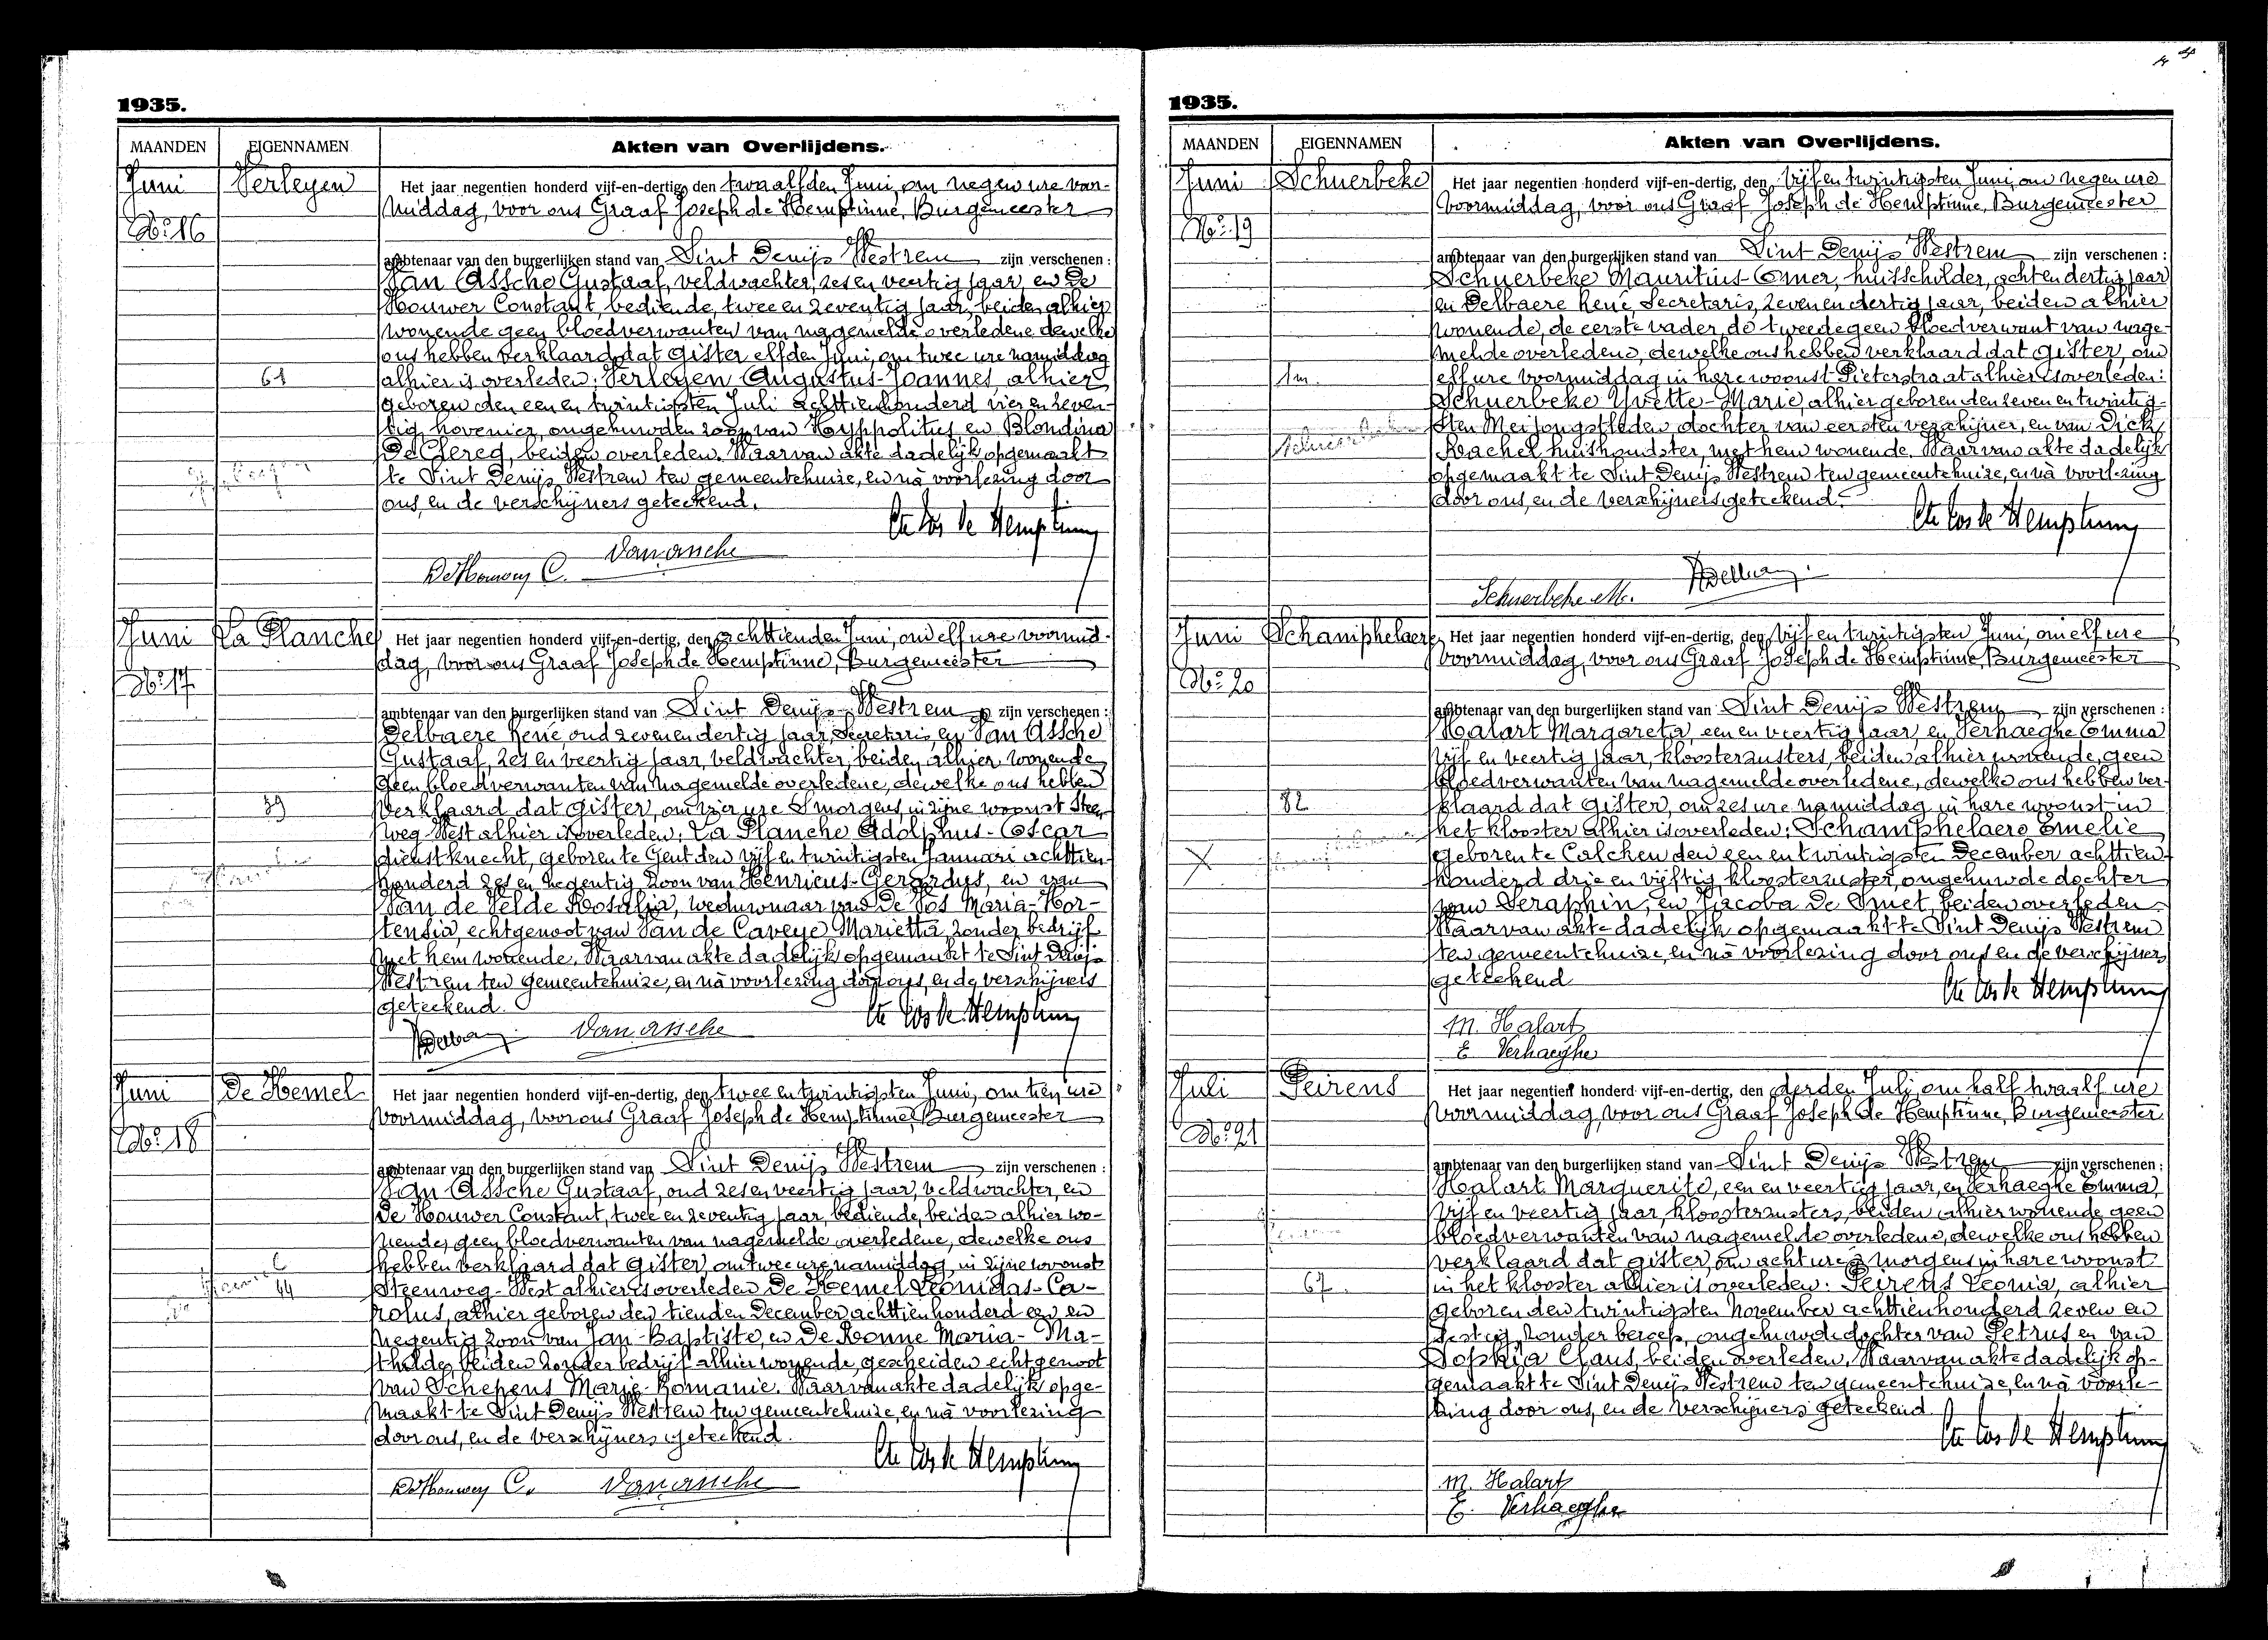 1935.
MAANDEN EIGENNAMEN Akten van Overlijdens.
Juni Verleyen Het jaar negentien honderd vijf-en-dertig, den twaalfden Juni, om negen ure voor-
middag, voor ons Graaf Joseph de Hemptinne, Burgemeester
No 16
ambtenaar van den burgerlijken stand van Sint Denijs Westrem zijn verschenen :
Van Assche Gustaaf, veldwachter, zes en veertig jaar, en De
Houwer Constant, bediende, twee en zeventig jaar, beiden alhier
wonende geen bloedverwanten van nagemelde overledene dewelke
ons hebben verklaard dat gister elfden Juni, om twee ure namiddag
61 alhier is overleden: Verleyen Augustus-Joannes, alhier
geboren den een en twintigsten Juli achttienhonderd vier en zeven-
tig, hovenier, ongehuwden zoon van Hyppolitus en Blondina
De Clercq, beiden overleden. Waarvan akte dadelijk opgemaakt
te Sint Denijs Westrem ten gemeentehuize, en nà voorlezing door
ons, en de verschijners geteekend.
Cte Jos de Hemptinne
Van assche
De Houwer C.
Juni La Planche Het jaar negentien honderd vijf-en-dertig, den achttienden Juni, om elf ure voormid-
dag, voor ons Graaf Joseph de Hemptinne, Burgemeester
No 17
ambtenaar van den burgerlijken stand van Sint Denijs Westrem zijn verschenen :
Delbaere René, oud zeven en dertig jaar, Secretaris, en Van Assche
Gustaaf, zes en veertig jaar, veldwachter, beiden alhier wonende
geen bloedverwanten van nagemelde overledene, dewelke ons hebben
39 verklaard dat gister, om vier ure 's morgens, in zijne woonst Steen-
weg West alhier is overleden: La Planche Adolphus-Oscar
dienstknecht, geboren te Gent den vijf en twintigsten Januari achttien-
honderd zes en negentig zoon van Henricus-Gerardus, en van
Van de Velde Rosalia, weduwnaar van De Vos Maria-Hor-
tensia, echtgenoot van Van de Caveye Marietta, zonder bedrijf
met hem wonende. Waarvan akte dadelijk opgemaakt te Sint Denijs
Westrem ten gemeentehuize, en nà voorlezing door ons, en de verschijners
geteekend.
Cte Jos de Hemptinne
RDelbaere Van assche
Juni De Hemel Het jaar negentien honderd vijf-en-dertig, den twee en twintigsten Juni, om tien ure
voormiddag, voor ons Graaf Joseph de Hemptinne, Burgemeester
No 18
ambtenaar van den burgerlijken stand van Sint Denijs Westrem zijn verschenen :
Van Assche Gustaaf, oud zes en veertig jaar, veldwachter, en
De Houwer Constant, twee en zeventig jaar, bediende, beiden alhier wo-
nende, geen bloedverwanten van nagemelde overledene, dewelke ons
hebben verklaard dat gister, om twee ure namiddag, in zijne woonst
44 Steenweg-West alhier is overleden De Hemel Leonidas-Ca-
rolus, alhier geboren den tienden December achttienhonderd een en
negentig zoon van Jan-Baptiste, en De Ronne Maria-Ma-
thilde, beiden zonder bedrijf alhier wonende, gescheiden echtgenoot
van Schepens Marie-Romanie. Waarvan akte dadelijk opge-
maakt te Sint Denijs Westrem ten gemeentehuize, en nà voorlezing
door ons, en de verschijners geteekend.
Cte Jos de Hemptinne
De Houwer C. Van assche
1935.
MAANDEN EIGENNAMEN Akten van Overlijdens.
Juni Schuerbeke Het jaar negentien honderd vijf-en-dertig, den vijf en twintigsten Juni, om negen ure
voormiddag, voor ons Graaf Joseph de Hemptinne, Burgemeester
No 19
ambtenaar van den burgerlijken stand van Sint Denijs Westrem zijn verschenen :
Schuerbeke Mauritius-Omer, huisschilder, acht en dertig jaar
en Delbaere René, Secretaris, zeven en dertig jaar, beiden alhier
wonende, de eerste vader, de tweede geen bloedverwant van nage-
melde overledene, dewelke ons hebben verklaard dat gister, om
1m. elf ure voormiddag in hare woonst Pieterstraat alhier is overleden:
Schuerbeke Yvette-Marie, alhier geboren den zeven en twintig-
sten Mei jongstleden dochter van eersten verschijner, en van Dick
Rachel huishoudster, met hem wonende. Waarvan akte dadelijk
opgemaakt te Sint Denijs Westrem ten gemeentehuize, en nà voorlezing
door ons, en de verschijners geteekend.
Cte Jos de Hemptinne
RDelbaere
Schuerbeke M.
Juni Schamphelaere Het jaar negentien honderd vijf-en-dertig, den vijf en twintigsten Juni, om elf ure
voormiddag, voor ons Graaf Joseph de Hemptinne, Burgemeester
No 20
ambtenaar van den burgerlijken stand van Sint Denijs Westrem zijn verschenen :
Halart Margareta, een en veertig jaar, en Verhaeghe Emma
vijf en veertig jaar, kloosterzusters, beiden alhier wonende, geen
bloedverwanten van nagemelde overledene, dewelke ons hebben ver-
82 klaard dat gister, om zes ure namiddag in hare woonst in
het klooster alhier is overleden: Schamphelaere Emelie
geboren te Calcken den een en twintigsten December achttien-
honderd drie en vijftig, kloosterzuster, ongehuwde dochter
van Seraphin, en Jacoba De Smet, beiden overleden.
Waarvan akte dadelijk opgemaakt te Sint Denijs Westrem
ten gemeentehuize, en nà voorlezing door ons en de verschijners
geteekend
Cte Jos de Hemptinne
M. Halart
E Verhaeghe
Juli Peirens Het jaar negentien honderd vijf-en-dertig, den derden Juli, om half twaalf ure
voormiddag, voor ons Graaf Joseph de Hemptinne, Burgemeester
No 21
ambtenaar van den burgerlijken stand van Sint Denijs Westrem zijn verschenen :
Halart Marguerite, een en veertig jaar, en Verhaeghe Emma,
vijf en veertig jaar, kloosterzusters, beiden alhier wonende geen
bloedverwanten van nagemelde overledene, dewelke ons hebben
verklaard dat gister, om acht ure 's morgens in hare woonst
67. in het klooster alhier is overleden: Peirens Leonia, alhier
geboren den twintigsten November achttienhonderd zeven en
zestig, zonder beroep, ongehuwde dochter van Petrus en van
Sophia Claus, beiden overleden. Waarvan akte dadelijk op-
gemaakt te Sint Denijs Westrem ten gemeentehuize, en nà voorle-
zing door ons, en de verschijners geteekend.
Cte Jos de Hemptinne
M. Halart
E. Verhaeghe